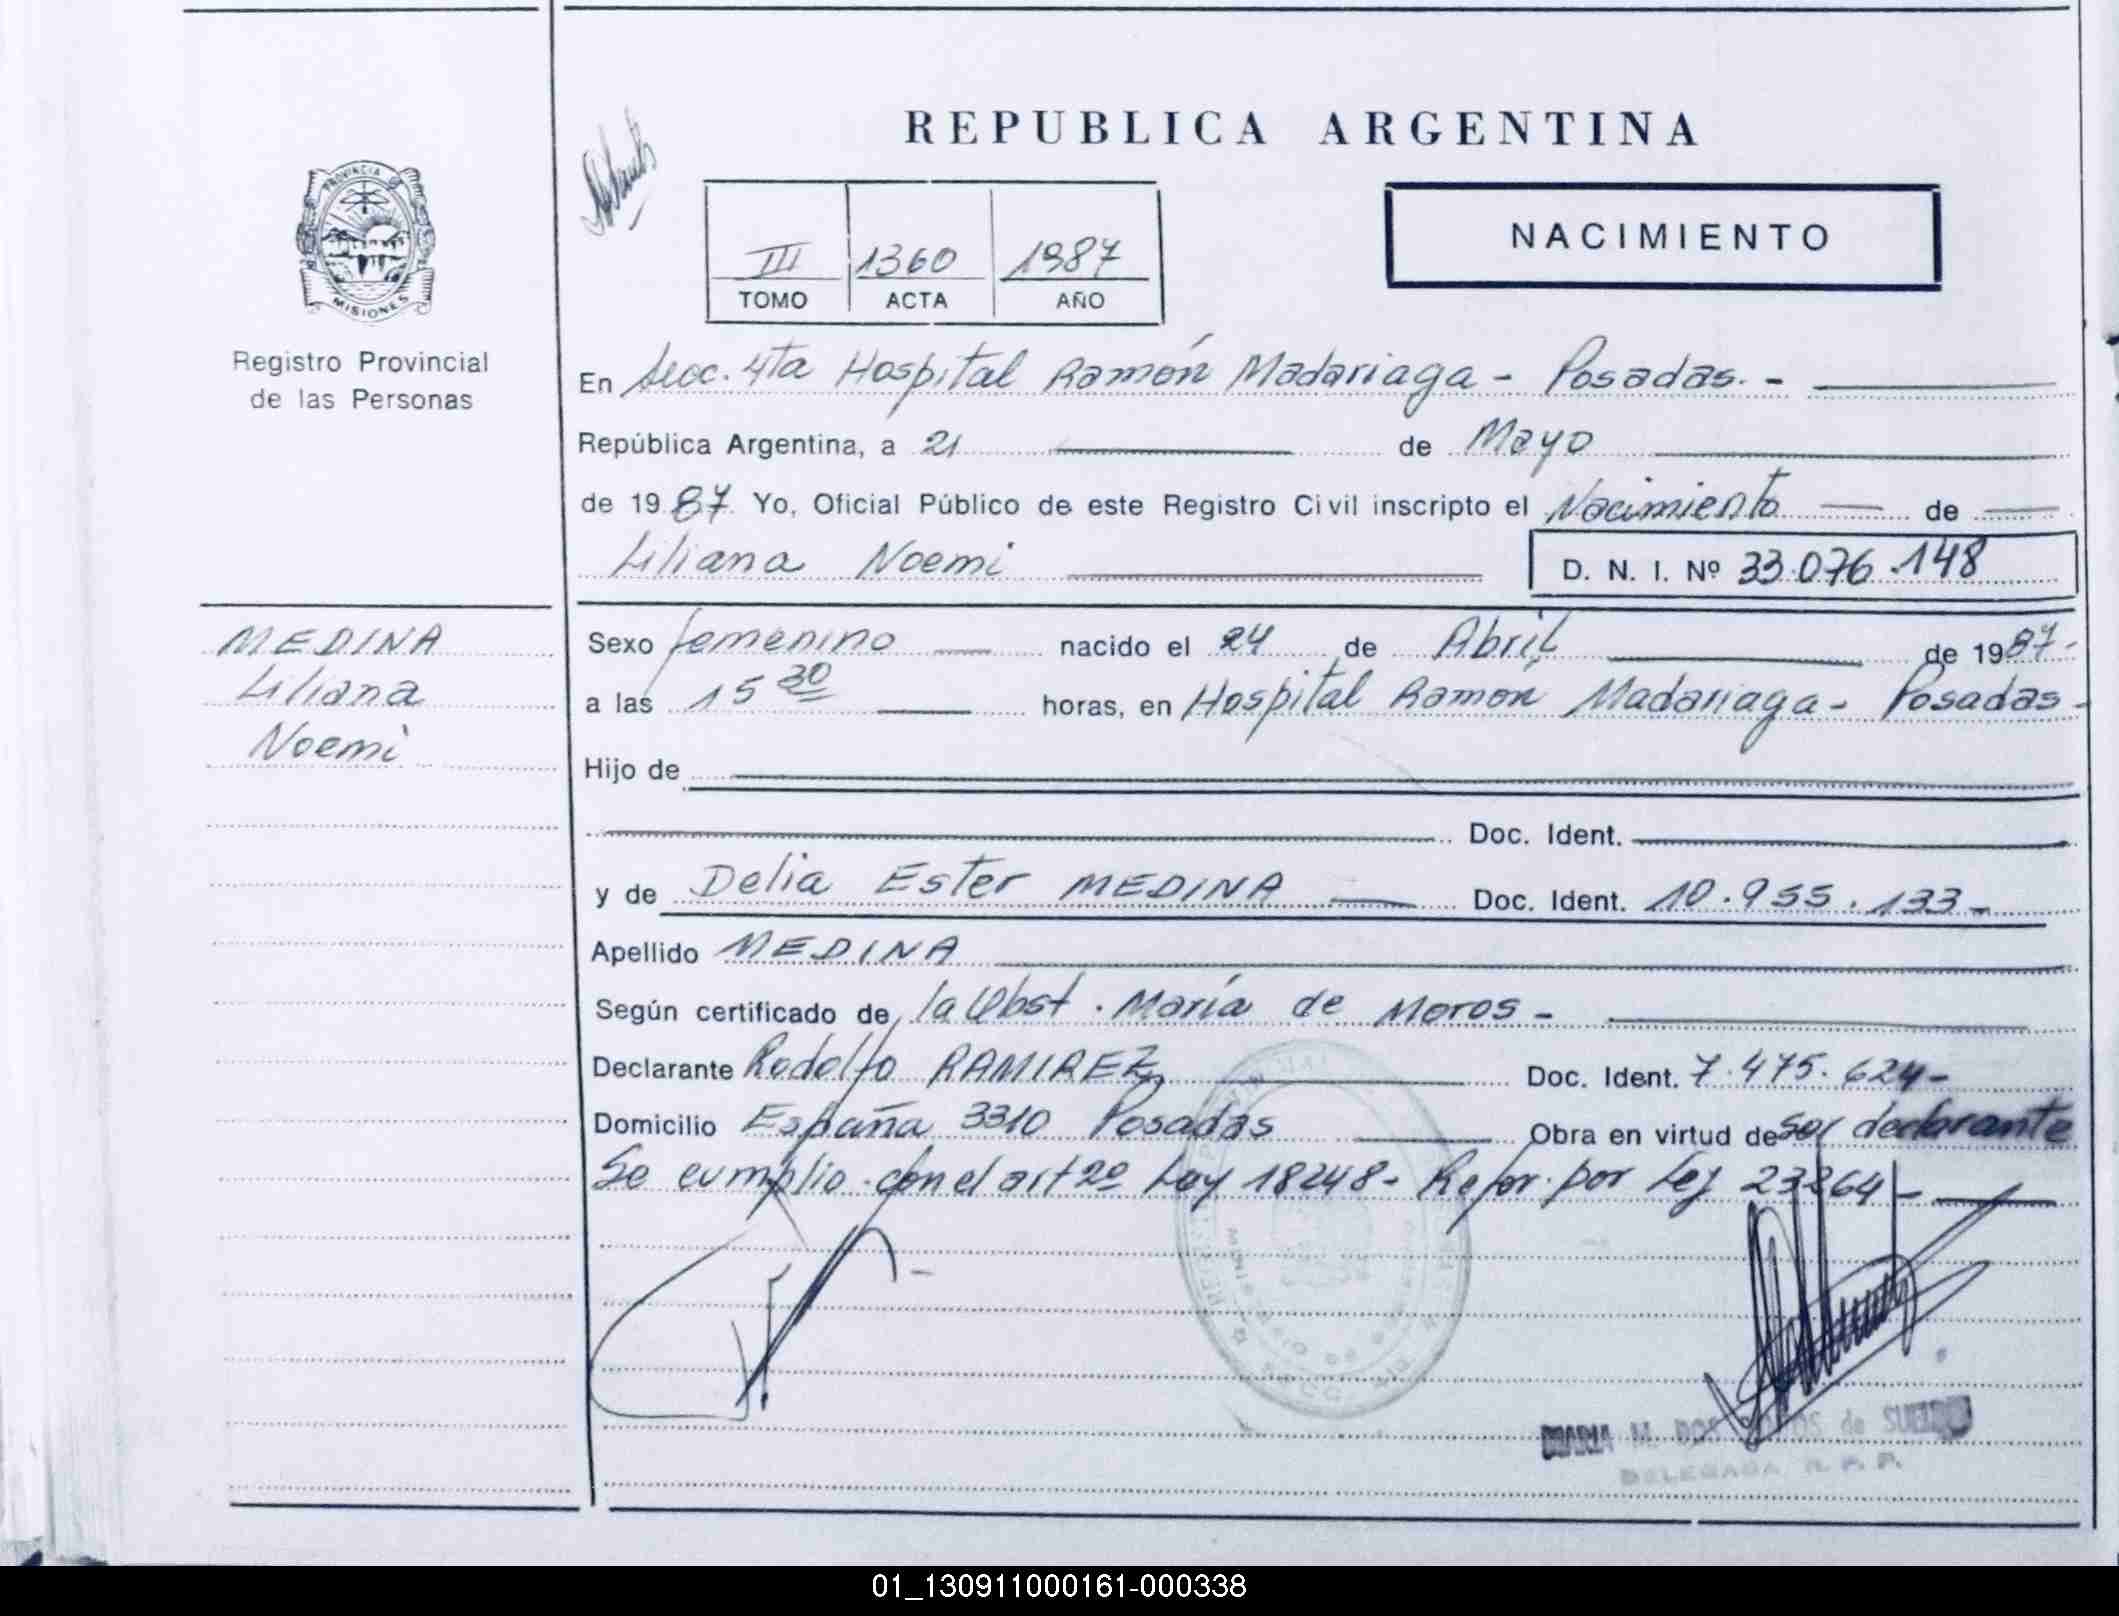 REPUBLICA ARGENTINA
PROVINCIA
MISIONES
Registro Provincial
de las Personas
III 1360 1987
TOMO ACTA AÑO
NACIMIENTO
En Secc. 4ta Hospital Ramón Madariaga - Posadas. -
República Argentina, a 21 de Mayo
de 1987 Yo, Oficial Público de este Registro Civil inscripto el Nacimiento de
Liliana Noemi D. N. I. Nº 33.076.148
MEDINA
Liliana
Noemi
Sexo femenino nacido el 24 de Abril de 1987-
a las 15 30 horas, en Hospital Ramon Madariaga - Posadas -
Hijo de
Doc. Ident.
y de Delia Ester MEDINA Doc. Ident. 10.955.133-
Apellido MEDINA
Según certificado de la Obst. María de Moros -
Declarante Rodolfo RAMIREZ Doc. Ident. 7.475.624-
Domicilio España 3310 Posadas Obra en virtud de ser declarante
Se cumplio con el art 2º Ley 18248- Refor. por Ley 23264-
MARIA M. de SUELDO
DELEGADA R. P. P.
01_130911000161-000338